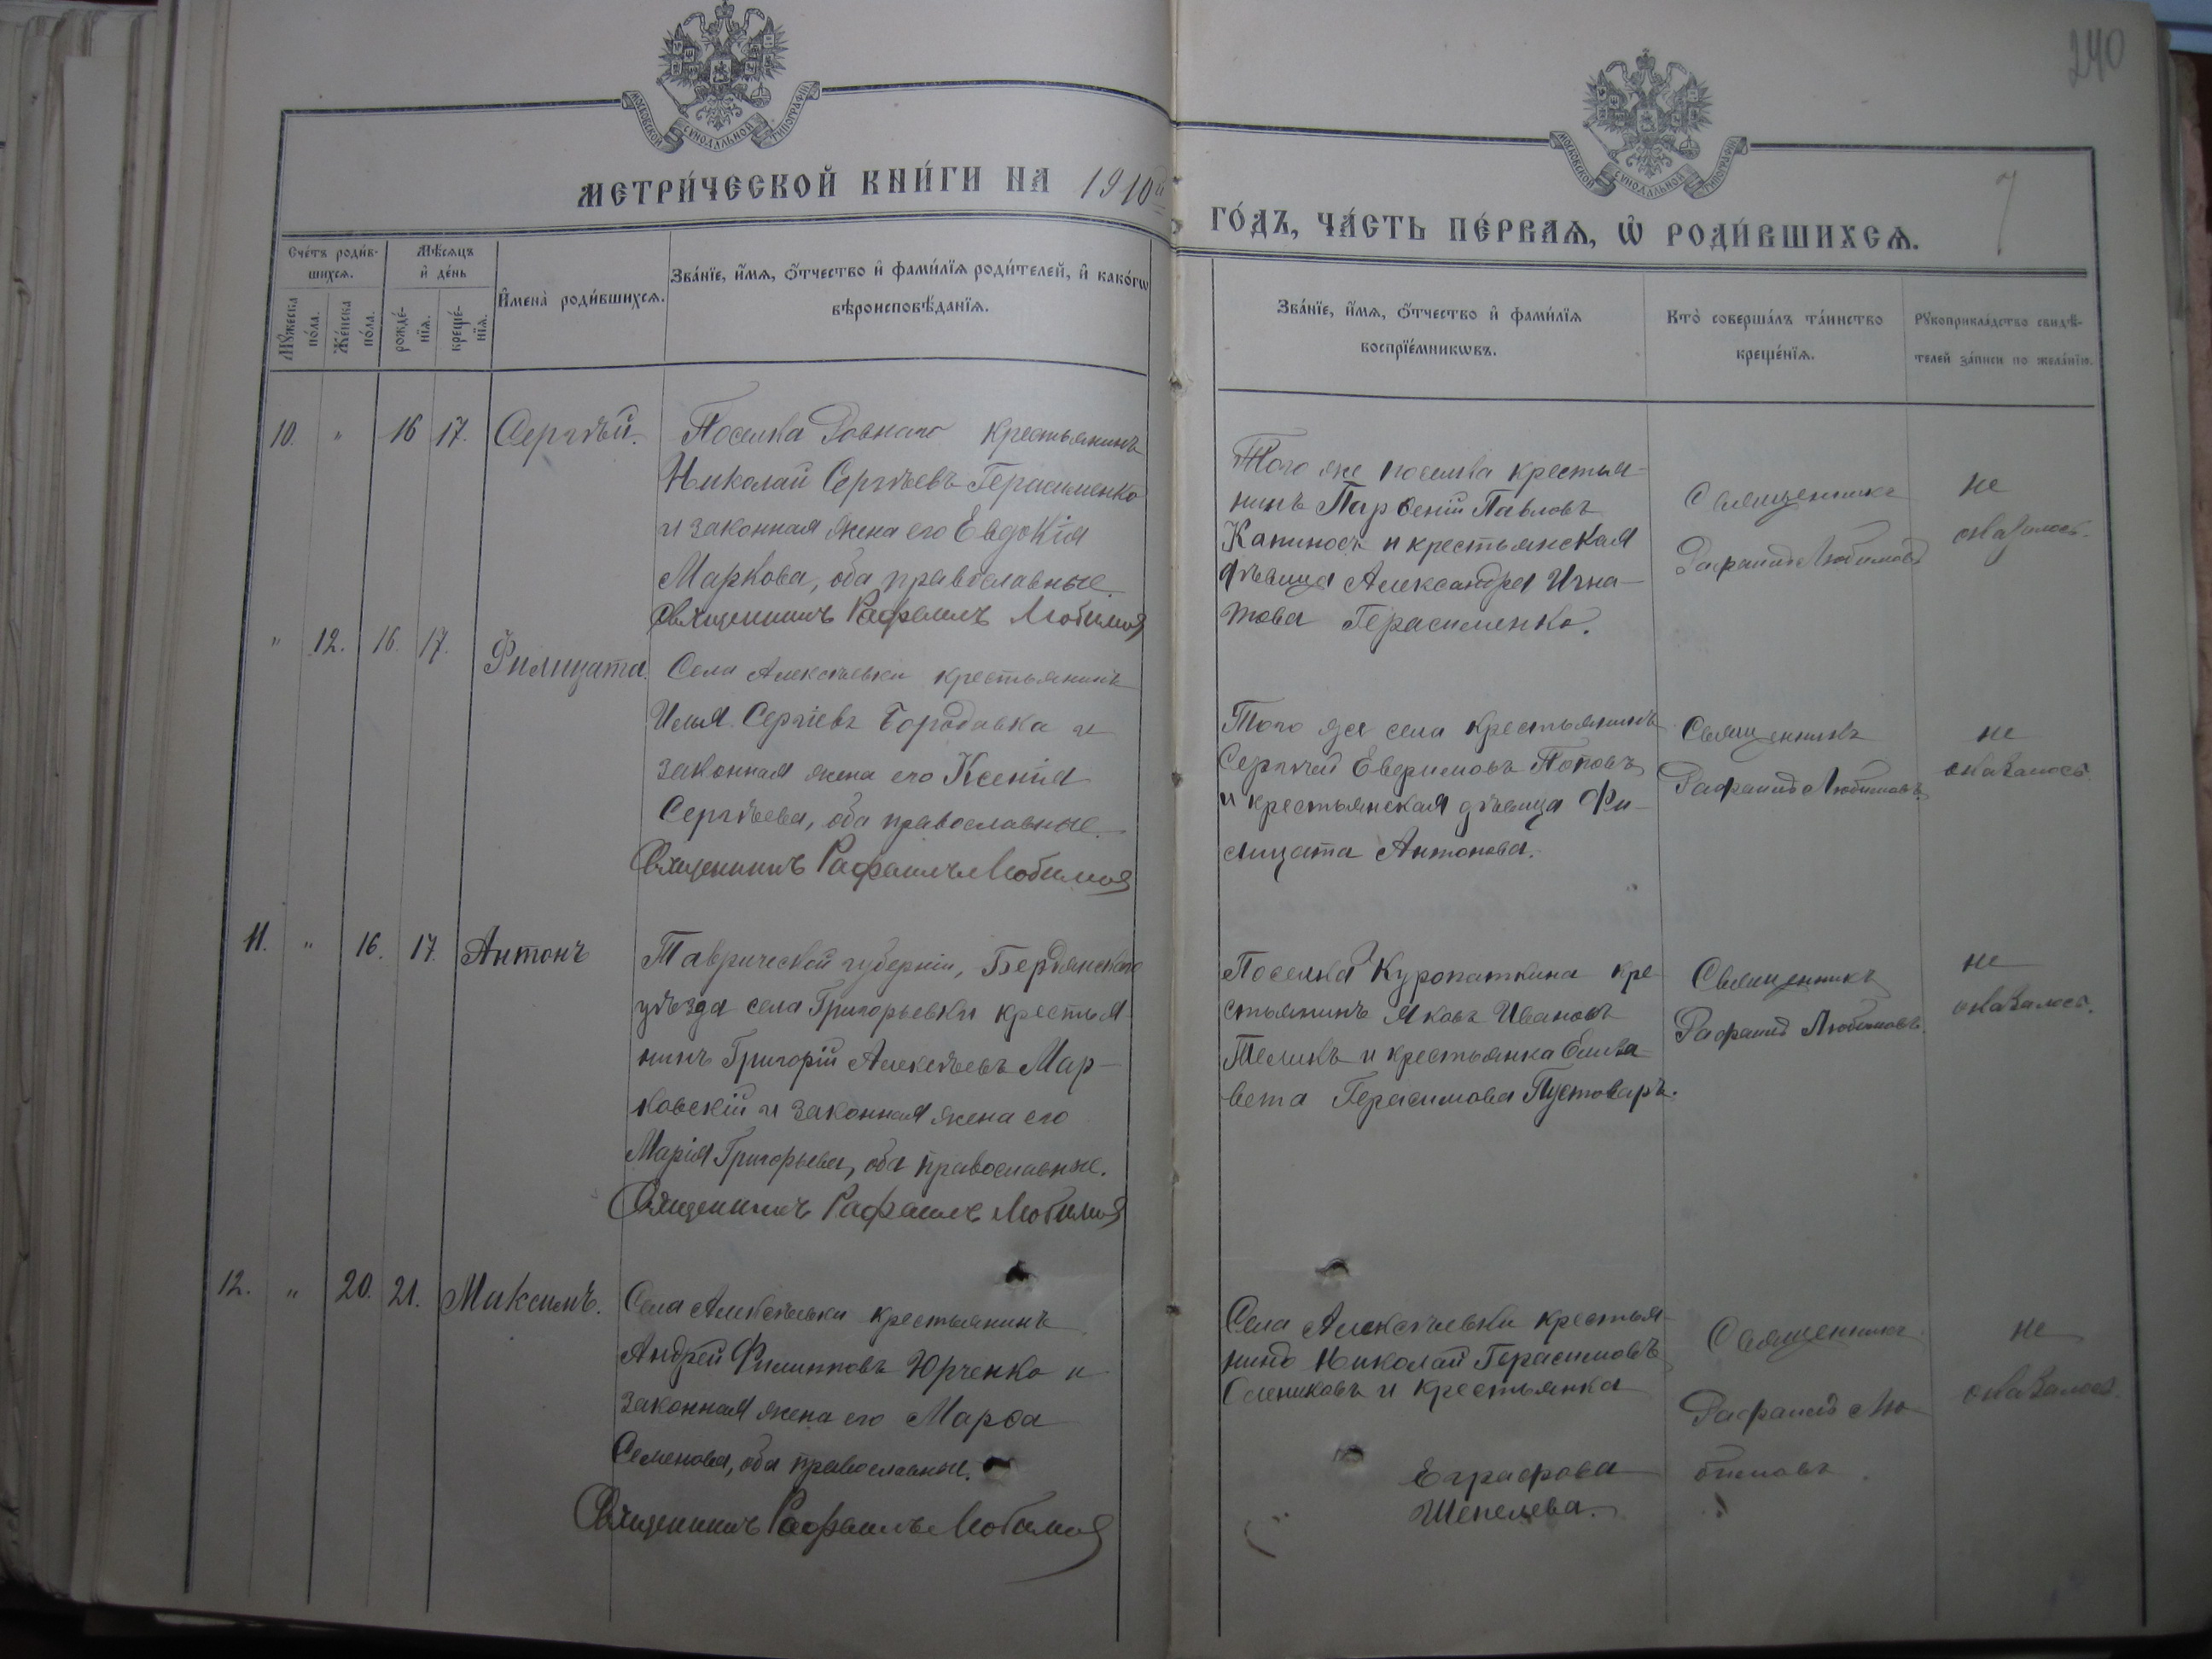 240
МОСКОВСКОЙ СѴНОДАЛЬНОЙ ТИПОГРАФІИ
МОСКОВСКОЙ СѴНОДАЛЬНОЙ ТИПОГРАФІИ
МЕТРИ́ЧЕСКОЙ КНИ́ГИ НА 1910й
ГО́ДЪ, ЧА́СТЬ ПЕ́РВАѦ, Ѡ҆ РОДИ́ВШИХСѦ.
7
Сче́тъ роди́в-
шихсѧ.
Мѣ́сѧцъ
и҆ де́нь
Мꙋ́жеска
по́ла.
Же́нска
по́ла.
рожде́-
нїѧ.
креще́-
нїѧ.
И҆мена̀ роди́вшихсѧ.
Зва́нїе, и҆́мѧ, ѻ҆́тчество и҆ фами́лїѧ роди́телей, и҆ како́гѡ
вѣроисповѣ́данїѧ.
Зва́нїе, и҆́мѧ, ѻ҆́тчество и҆ фами́лїѧ
воспрїе́мникѡвъ.
Кто̀ соверша́лъ та́инство
креще́нїѧ.
Рꙋкоприкла́дство свидѣ́-
телей за́писи по жела́нїю.
10. " 16 17. Сергѣй.
Поселка Ровнаго крестьянинъ
Николай Сергѣевъ Герасименко
и законная жена его Евдокія
Маркова, оба православные.
Священникъ Рафаилъ Любимов
Того же поселка крестья-
нинъ Парѳеній Павловъ
Капиносъ и крестьянская
дѣвица Александра Игна-
това Герасименко.
Священникъ
Рафаилъ Любимовъ
не
оказалось.
" 12. 16. 17. Филицата.
Села Алексѣевки крестьянинъ
Илья Сергіевъ Бородавка и
законная жена его Ксенія
Сергѣева, оба православные.
Священникъ Рафаилъ Любимов
Того же села крестьянинъ
Сергѣй Евфимовъ Поповъ
и крестьянская дѣвица Фи-
лицата Антонова.
Священникъ
Рафаилъ Любимовъ.
не
оказалось.
11. " 16. 17. Антонъ
Таврической губерніи, Бердянскаго
уѣзда села Григорьевки крестья-
нинъ Григорій Алексѣевъ Мар-
ковскій и законная жена его
Марія Григорьева, оба православные.
Священникъ Рафаилъ Любимов
Поселка Куропаткина кре-
стьянинъ Яковъ Ивановъ
Теликъ и крестьянка Елиза-
вета Герасимова Пустоваръ.
Священникъ
Рафаилъ Любимовъ.
не
оказалось.
12. " 20. 21. Максимъ.
Села Алексѣевки крестьянинъ
Андрей Филипповъ Юрченко и
законная жена его Марѳа
Семенова, оба православные.
Священникъ Рафаилъ Любимов
Села Алексѣевки крестья-
нинъ Николай Герасимовъ
Олениковъ и крестьянка
Евграфова
Шепелева.
Священникъ
Рафаилъ Лю-
бимовъ.
не
оказалось.